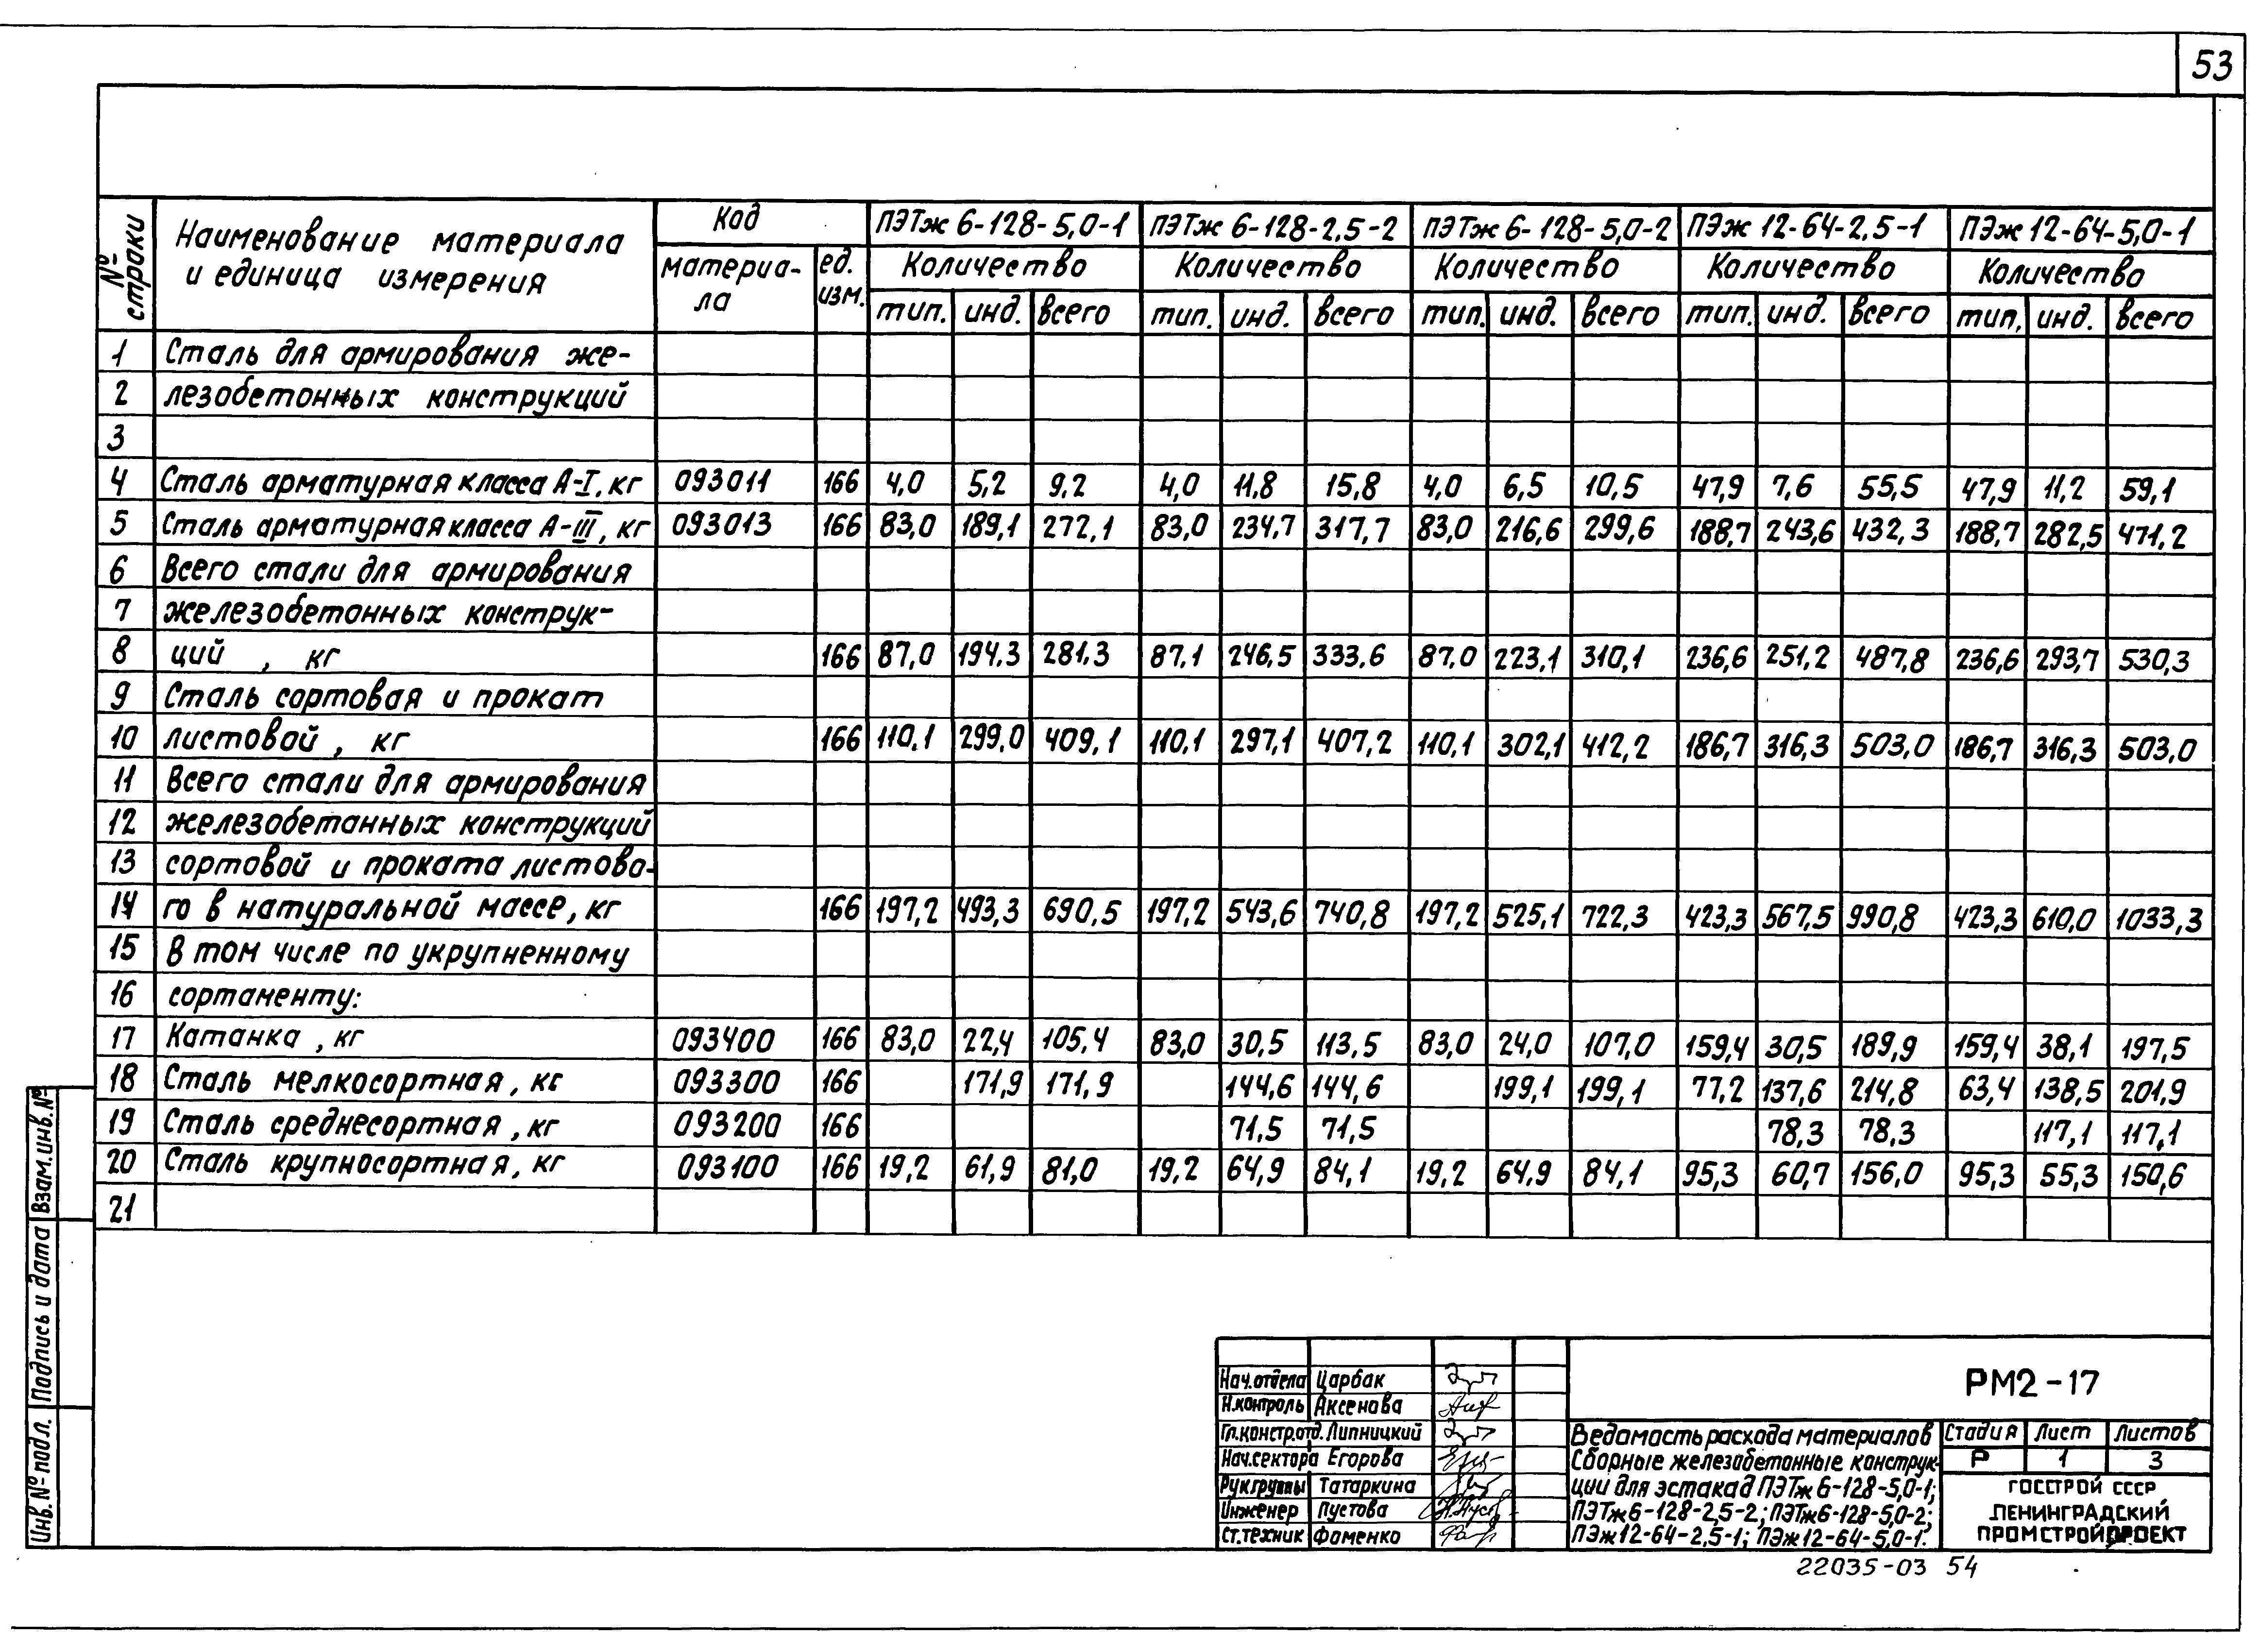 53
№ строки | Наименование материала и единица измерения | Код | ПЭТж 6-128-5,0-1 | ПЭТж 6-128-2,5-2 | ПЭТж 6-128-5,0-2 | ПЭж 12-64-2,5-1 | ПЭж 12-64-5,0-1
материа-ла | ед. изм. | Количество | Количество | Количество | Количество | Количество
тип. | инд. | всего | тип. | инд. | всего | тип. | инд. | всего | тип. | инд. | всего | тип. | инд. | всего
1 Сталь для армирования же-
2 лезобетонных конструкций
3
4 Сталь арматурная класса А-I, кг 093011 166 4,0 5,2 9,2 4,0 11,8 15,8 4,0 6,5 10,5 47,9 7,6 55,5 47,9 11,2 59,1
5 Сталь арматурная класса А-III, кг 093013 166 83,0 189,1 272,1 83,0 234,7 317,7 83,0 216,6 299,6 188,7 243,6 432,3 188,7 282,5 471,2
6 Всего стали для армирования
7 железобетонных конструк-
8 ций , кг 166 87,0 194,3 281,3 87,1 246,5 333,6 87,0 223,1 310,1 236,6 251,2 487,8 236,6 293,7 530,3
9 Сталь сортовая и прокат
10 листовой , кг 166 110,1 299,0 409,1 110,1 297,1 407,2 110,1 302,1 412,2 186,7 316,3 503,0 186,7 316,3 503,0
11 Всего стали для армирования
12 железобетонных конструкций
13 сортовой и проката листово-
14 го в натуральной массе, кг 166 197,2 493,3 690,5 197,2 543,6 740,8 197,2 525,1 722,3 423,3 567,5 990,8 423,3 610,0 1033,3
15 В том числе по укрупненному
16 сортаменту:
17 Катанка , кг 093400 166 83,0 22,4 105,4 83,0 30,5 113,5 83,0 24,0 107,0 159,4 30,5 189,9 159,4 38,1 197,5
18 Сталь мелкосортная, кг 093300 166 171,9 171,9 144,6 144,6 199,1 199,1 77,2 137,6 214,8 63,4 138,5 201,9
19 Сталь среднесортная, кг 093200 166 71,5 71,5 78,3 78,3 117,1 117,1
20 Сталь крупносортная, кг 093100 166 19,2 61,9 81,0 19,2 64,9 84,1 19,2 64,9 84,1 95,3 60,7 156,0 95,3 55,3 150,6
21
Взам.инв.№
Подпись и дата
Инв.№ подл.
Нач.отдела Царбак
Н.контроль Аксенова
Гл.констр.отд. Липницкий
Нач.сектора Егорова
Рук.группы Татаркина
Инженер Пустова
Ст.техник Фоменко
РМ2-17
Ведомость расхода материалов
Сборные железобетонные конструк-
ции для эстакад ПЭТж 6-128-5,0-1;
ПЭТж6-128-2,5-2; ПЭТж6-128-5,0-2;
ПЭж12-64-2,5-1; ПЭж12-64-5,0-1.
Стадия Лист Листов
Р 1 3
ГОССТРОЙ СССР
ЛЕНИНГРАДСКИЙ
ПРОМСТРОЙПРОЕКТ
22035-03 54